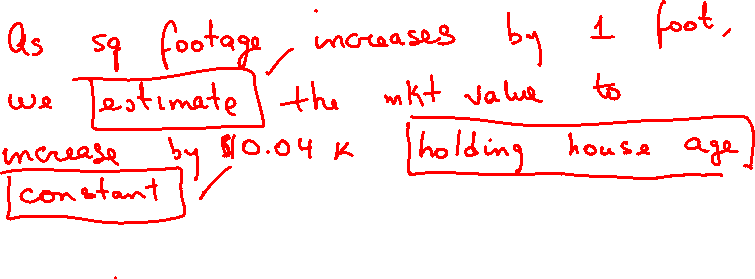 As sq footage increases by 1 foot,
we estimate the mkt value to
increase by $0.04 K holding house age
constant